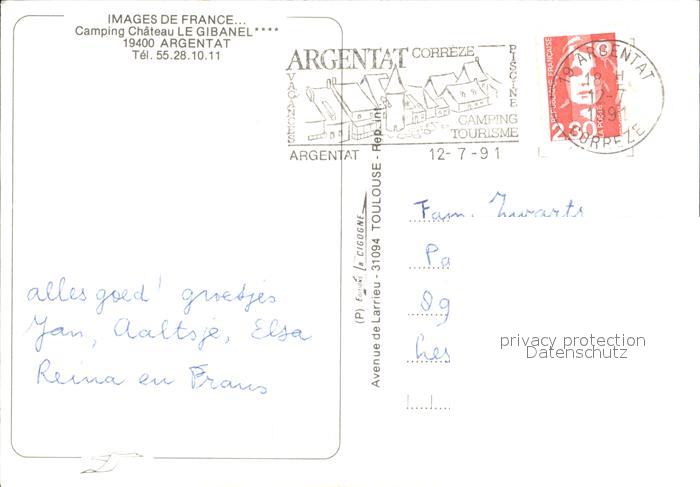 IMAGES DE FRANCE...
Camping Château LE GIBANEL****
19400 ARGENTAT
Tél. 55.28.10.11
ARGENTAT CORRÈZE
VACANCES
PISCINE
CAMPING
TOURISME
ARGENTAT 12-7-91
REPUBLIQUE FRANÇAISE
LA POSTE
19 ARGENTAT
18 H
12-7
1991
CORREZE
(P) Editions la CIGOGNE
Avenue de Larrieu - 31094 TOULOUSE - Rep. int
Fam. Zwarts
Pa
Les
alles goed! groetjes
Jan, Aaltsje, Elsa
Reina en Frans
privacy protection
Datenschutz